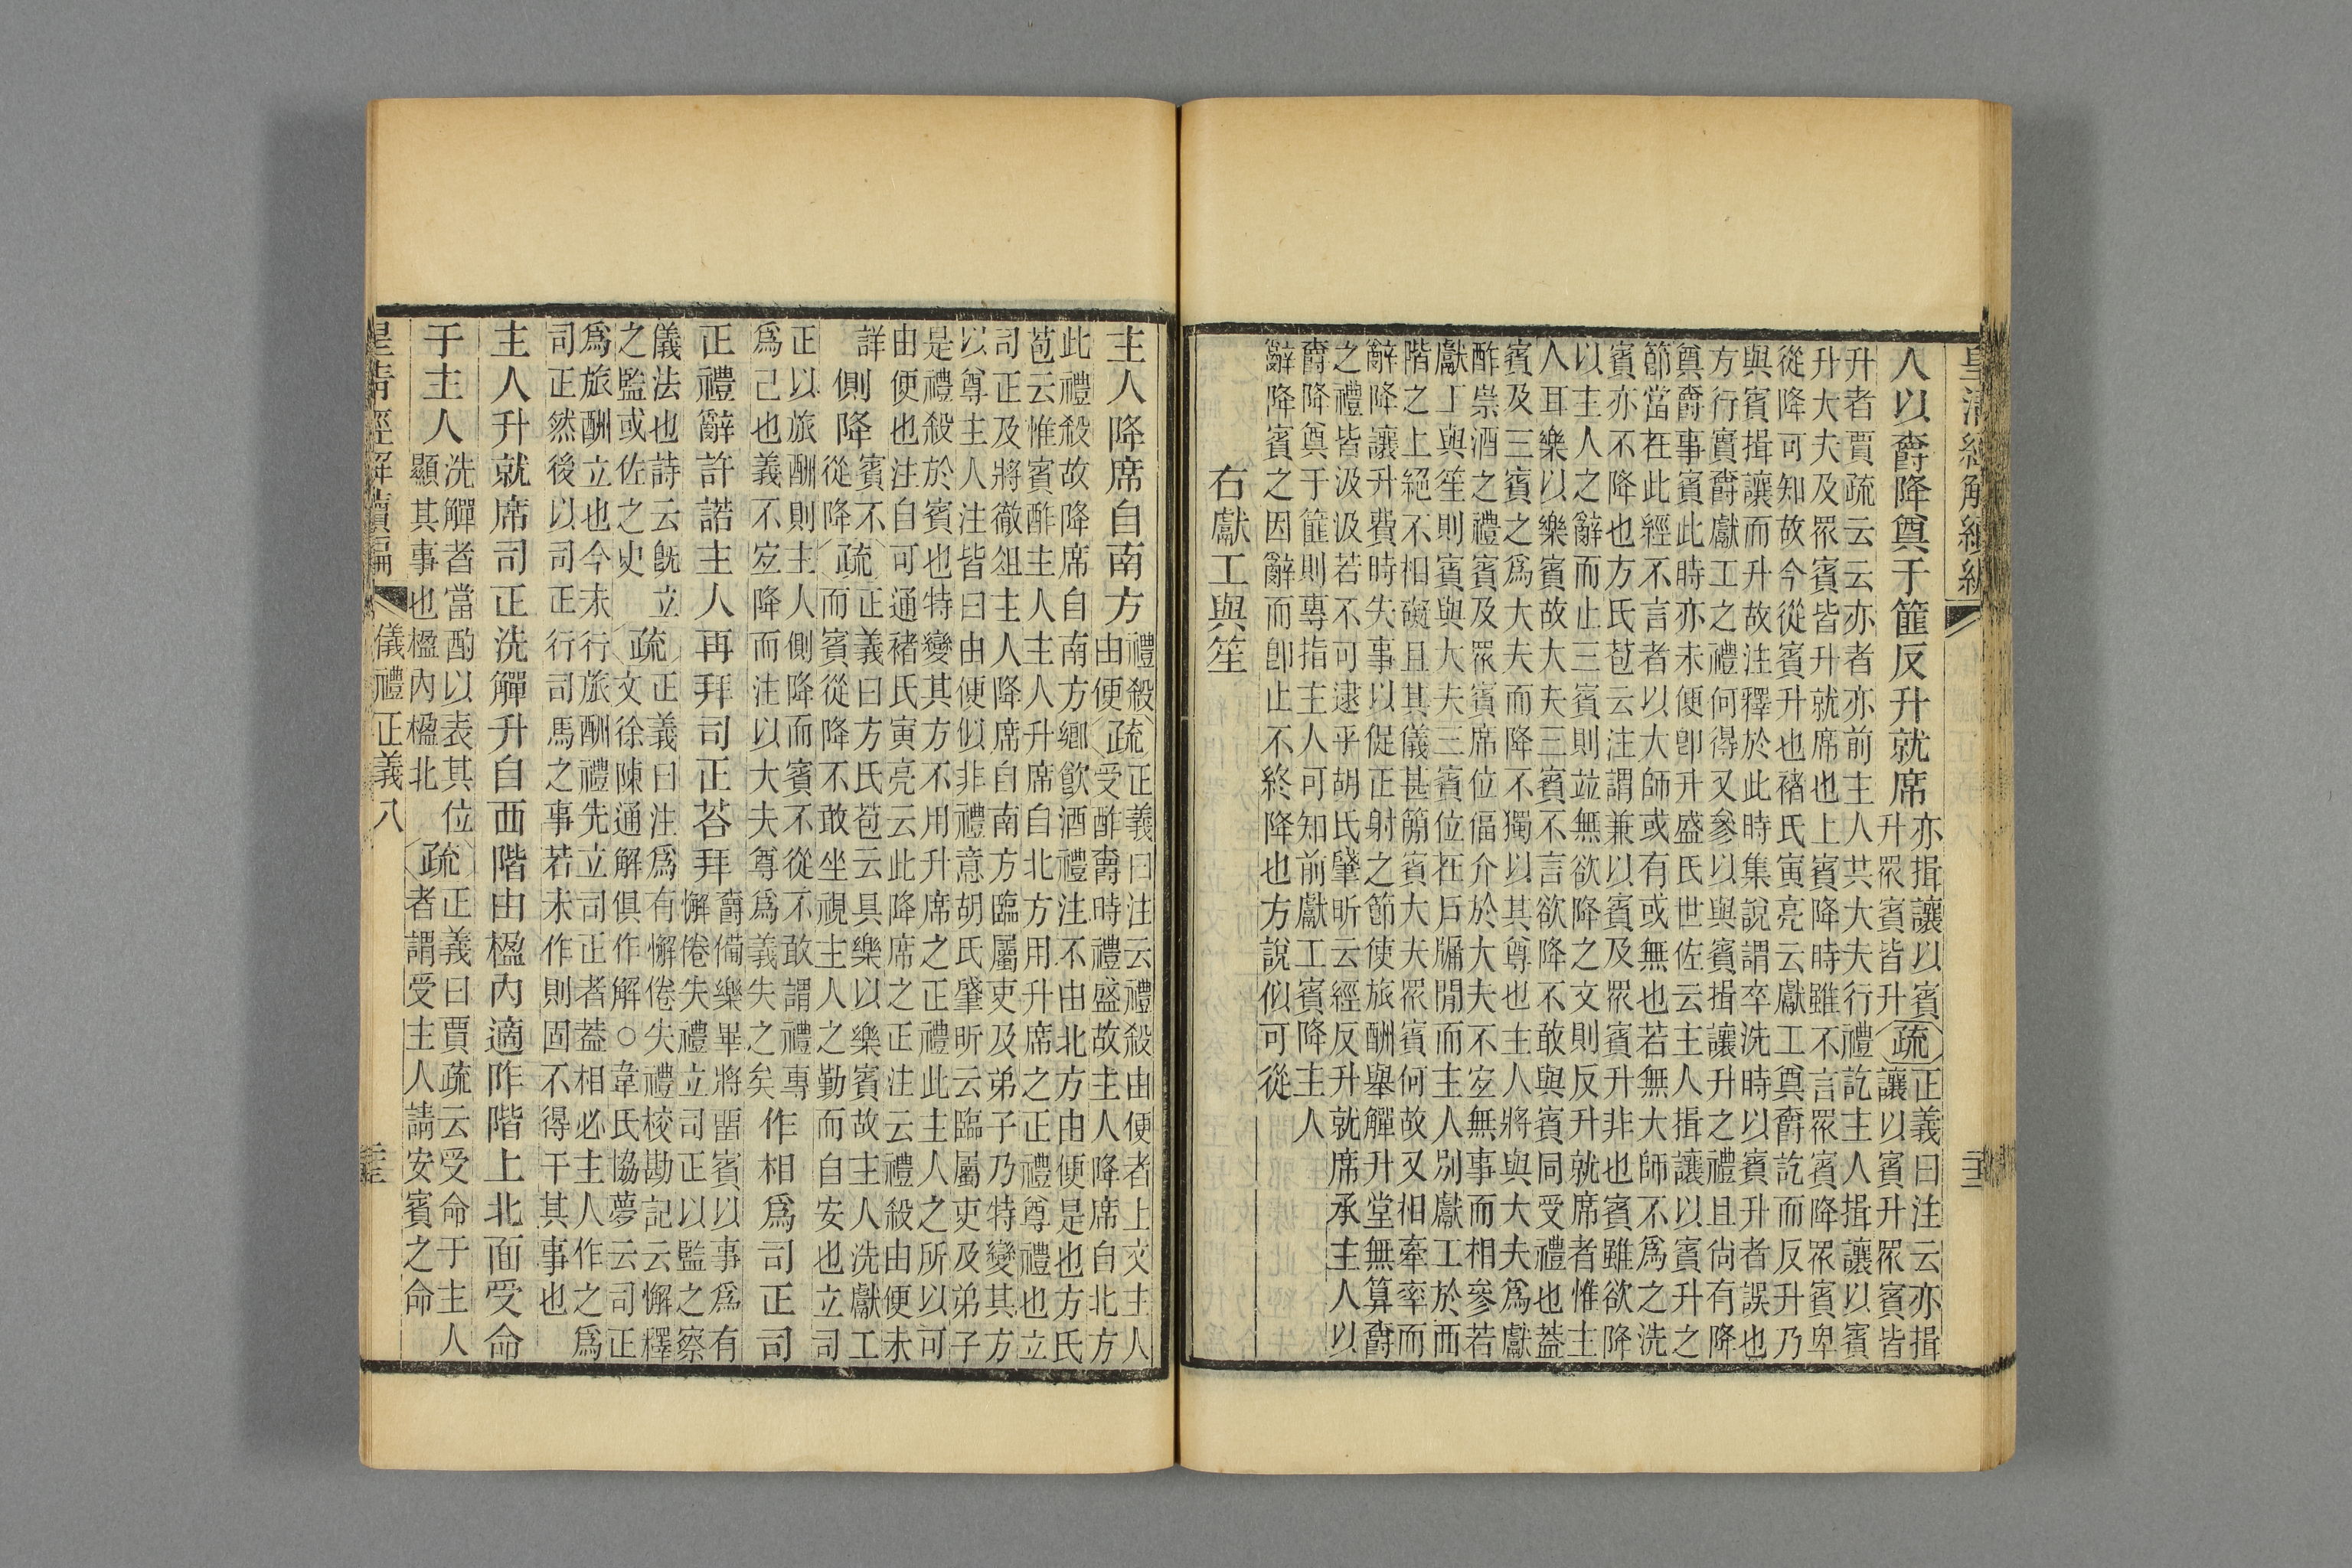 皇清經解續編
人以爵降奠于篚反升就席
亦揖讓以賓
升衆賓皆升
疏
正義曰注云亦揖
讓以賓升衆賓皆
升者賈疏云云亦者亦前主人共大夫行禮訖主人揖讓以賓
升大夫及衆賓皆升就席也上賓降時雖不言衆賓降衆賓卑
從降可知故今從賓升也褚氏寅亮云獻工奠爵訖而反升乃
與賓揖讓而升故注釋於此時集說謂卒洗時以賓升者誤也
方行賓爵獻工之禮何得又參以與賓揖讓升之禮且尚有降
奠爵事賓此時亦未便卽升盛氏世佐云主人揖讓以賓升之
節當在此經不言者以大師或有或無也若無大師不爲之洗
賓亦不降也方氏苞云注謂兼以賓及衆賓升非也賓雖欲降
以主人之辭而止三賓則竝無欲降之文則反升就席者惟主
人耳樂以樂賓故大夫三賓不言欲降不敢與賓同受禮也蓋
賓及三賓之爲大夫而降不獨以其尊也主人將與大夫爲獻
酢崇酒之禮賓及衆賓席位偪介於大夫不宐無事而相參若
獻工與笙則賓與大夫三賓位在戶牖閒而主人別獻工於西
階之上絕不相礙且其儀甚簡賓大夫衆賓何故又相牽率而
辭降讓升費時失事以促正射之節使旅酬舉觶升堂無算爵
之禮皆汲汲若不可逮乎胡氏肇昕云經反升就席承主人以
爵降奠于篚則專指主人可知前獻工賓降主人
辭降賓之因辭而卽止不終降也方說似可從
右獻工與笙
主人降席自南方
禮殺
由便
疏
正義曰注云禮殺由便者上文主人
受酢爵時禮盛故主人降席自北方
此禮殺故降席自南方鄉飮酒禮注不由北方由便是也方氏
苞云惟賓酢主人主人升席自北方用升席之正禮尊禮也立
司正及將徹俎主人降席自南方臨屬吏及弟子乃特變其方
以尊主人注皆曰由便似非禮意胡氏肇昕云臨屬吏及弟子
是禮殺於賓也特變其方不用升席之正禮此主人之所以可
由便也注自可通褚氏寅亮云此降席之正注云禮殺由便未
詳
側降
賓不
從降
疏
正義曰方氏苞云具樂以樂賓故主人洗獻工
而賓從降不敢坐視主人之勤而自安也立司
正以旅酬則主人側降而賓不從不敢謂禮專
爲己也義不宐降而注以大夫尊爲義失之矣
作相爲司正司
正禮辭許諾主人再拜司正荅拜
爵備樂畢將畱賓以事爲有
懈倦失禮立司正以監之察
儀法也詩云旣立
之監或佐之史
疏
正義曰注爲有懈倦失禮校勘記云懈釋
文徐陳通解俱作解○韋氏協夢云司正
爲旅酬立也今未行旅酬禮先立司正者蓋相必主人作之爲
司正然後以司正行司馬之事若未作則固不得干其事也
主人升就席司正洗觶升自西階由楹內適阼階上北面受命
于主人
洗觶者當酌以表其位
顯其事也楹內楹北
疏
正義曰賈疏云受命于主人
者謂受主人請安賓之命
皇清經解續編
儀禮正義八